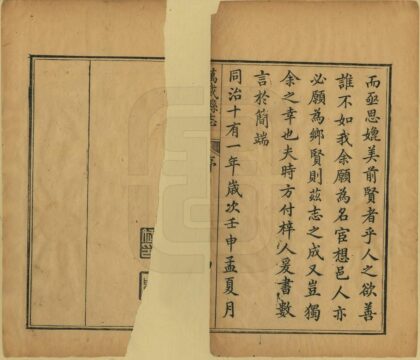 而亟思媲美前賢者乎人之欲善
誰不如我余願為名宦想邑人亦
必願為鄉賢則茲志之成又豈獨
余之幸也夫時方付梓人爰書數
言於簡端
同治十有一年歲次壬申孟夏月
萬載縣志